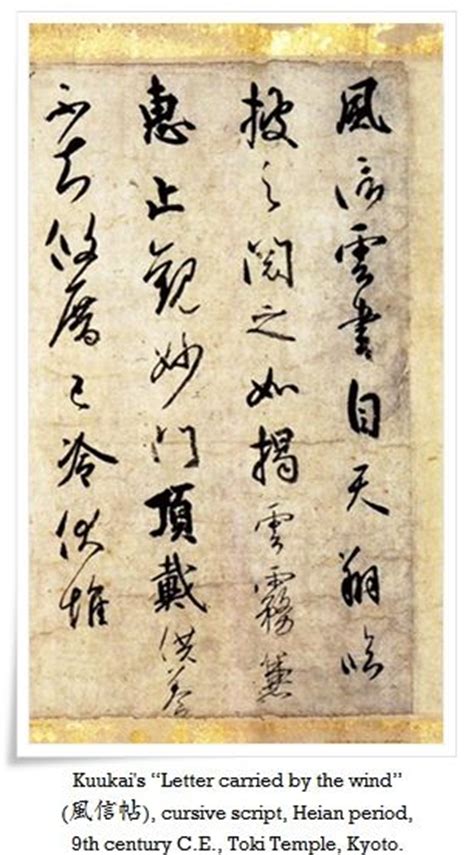 風信雲書自天翔臨
披之閲之如掲雲霧兼
惠止觀妙門頂戴供養
不知攸厝已冷伏惟
Kuukai's “Letter carried by the wind”
(風信帖), cursive script, Heian period,
9th century C.E., Toki Temple, Kyoto.